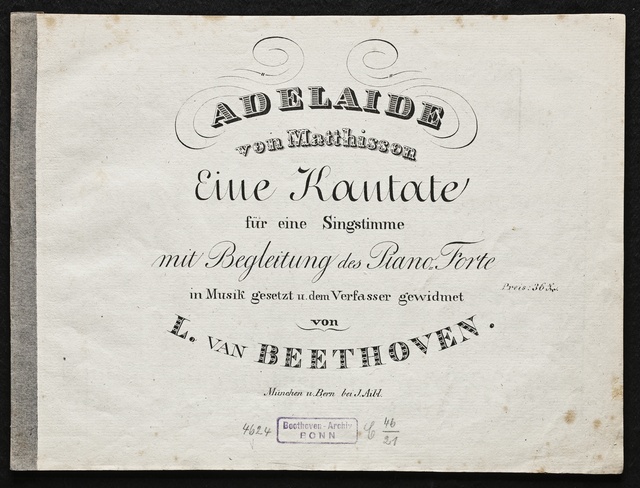 ADELAIDE
von Matthisson
Eine Kantate
für eine Singstimme
mit Begleitung des Piano-Forte
in Musik gesetzt u. dem Verfasser gewidmet
Preis: 36 Xr.
von
L. VAN BEETHOVEN.
München u. Bern bei J. Aibl.
4624
Beethoven-Archiv
BONN
C 46/21